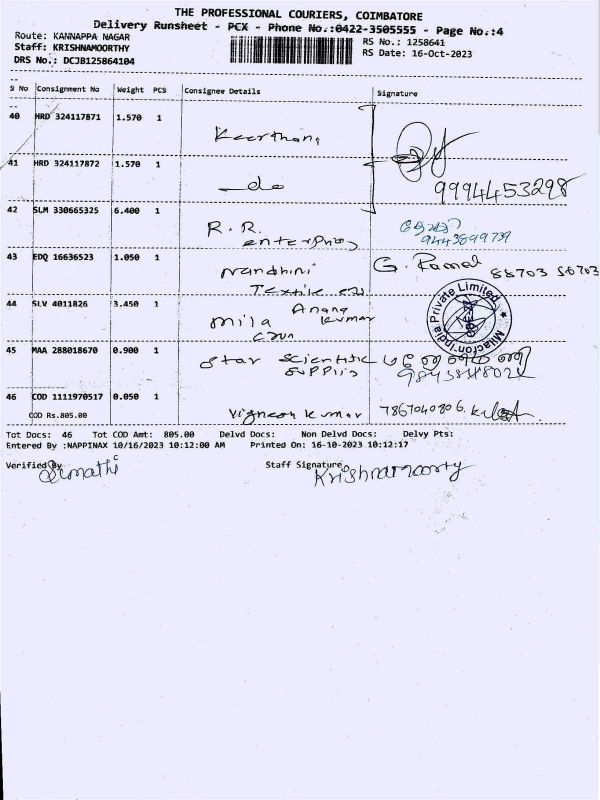 THE PROFESSIONAL COURIERS, COIMBATORE
Delivery Runsheet - PCX - Phone No.:0422-3505555 - Page No.:4
Route: KANNAPPA NAGAR RS No.: 1258641
Staff: KRISHNAMOORTHY RS Date: 16-Oct-2023
DRS No.: DCJB125864104
S No Consignment No Weight PCS Consignee Details Signature
40 HRD 324117871 1.570 1
Keerthana
41 HRD 324117872 1.570 1
do 9994453298
42 SLM 330665325 6.400 1
R.R.
enterprises 9443899739
43 EDQ 16636523 1.050 1
Nandhini G.
Textile
44 SLV 4011826 3.450 1
Anand
Mila Kumar
Milacron India Private Limited
45 MAA 288018670 0.900 1
Star Scientific
Supplis
46 COD 1111970517 0.050 1
COD Rs.805.00
Vignesh kumar 7867040806.
Tot Docs: 46 Tot COD Amt: 805.00 Delvd Docs: Non Delvd Docs: Delvy Pts:
Entered By :NAPPINAX 10/16/2023 10:12:00 AM Printed On: 16-10-2023 10:12:17
Verified By Staff Signature
Krishnamoorty